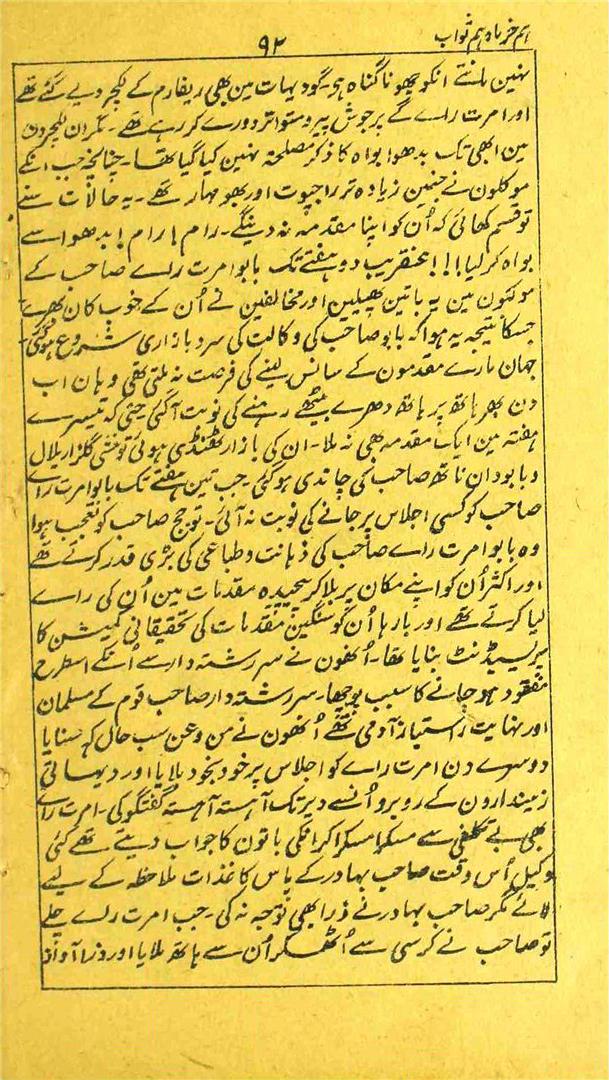 ہم خرما و ہم ثواب
۹۲
نہین مانتے انکو چھونا گناہ ہی۔ گو دیہات مین بھی ریفارم کے لکچر دیے گئے تھے
اور امرت راے کے پرجوش پیرو متواتر دورے کر رہے تھے۔ مگر ان لکچرون
مین ابھی تک بدھوا بواہ کا ذکر مصلحتہً نہین کیا گیا تھا۔ چنانچہ جب انکے
موکلون نے جنمین زیادہ تر راجپوت اور بھومہار تھے۔ یہ حالات سنے
تو قسم کھائی کہ اُن کو اپنا مقدمہ نہ دینگے۔ رام! رام! بدھوا سے
بواہ کر لیا!!! عنقریب دو ہفتے تک بابو امرت راے صاحب کے
موکلون مین یہ باتین پھیلین اور مخالفین نے اُن کے خوب کان بھرے
جسکا نتیجہ یہ ہوا کہ بابو صاحب کی وکالت کی سرد بازاری شروع ہوگئی۔
جہان مارے مقدمون کے سانس لینے کی فرصت نہ ملتی تھی وہان اب
دن بھر ہاتھ پر ہاتھ دھرے بیٹھے رہنے کی نوبت آگئی۔ حتی کہ تیسرے
ہفتہ مین ایک مقدمہ بھی نہ ملا۔ ان کی بازار ٹھنڈی ہوئی تو منشی گلزاریلال
و بابو دان ناتھ صاحب کی چاندی ہوگئی۔ جب تین ہفتے تک بابو امرت راے
صاحب کو کسی اجلاس پر جانے کی نوبت نہ آئی۔ تو جج صاحب کو تعجب ہوا
وہ بابو امرت راے صاحب کی ذہانت و طباعی کی بڑی قدر کرتے تھے
اور اکثر اُن کو اپنے مکان پر بلا کر پیچیدہ مقدمات مین اُن کی راے
لیا کرتے تھے اور بارہا اُن کو سنگین مقدمات کی تحقیقاتی کمیشن کا
پریسیڈنٹ بنایا تھا۔ اُنھون نے سررشتہ دار سے اُنکے اسطرح
مفقود ہو جانے کا سبب پوچھا۔ سررشتہ دار صاحب قوم کے مسلمان
اور نہایت راستباز آدمی تھے اُنھون نے من و عن سب حال کہہ سنایا
دوسرے دن امرت راے کو اجلاس پر خود بخود بلایا اور دیہاتی
زمیندارون کے روبرو اُنسے دیر تک آہستہ آہستہ گفتگو کی۔ امرت راے
بھی بے تکلفی سے مسکرا مسکرا کر انکی باتون کا جواب دیتے تھے کئی
وکیل اُس وقت صاحب بہادر کے پاس کاغذات ملاحظہ کے لیے
لائے مگر صاحب بہادر نے ذرا بھی توجہ نہ کی۔ جب امرت راے چلے
تو صاحب نے کرسی سے اُٹھکر اُن سے ہاتھ ملایا اور ذرا آواز